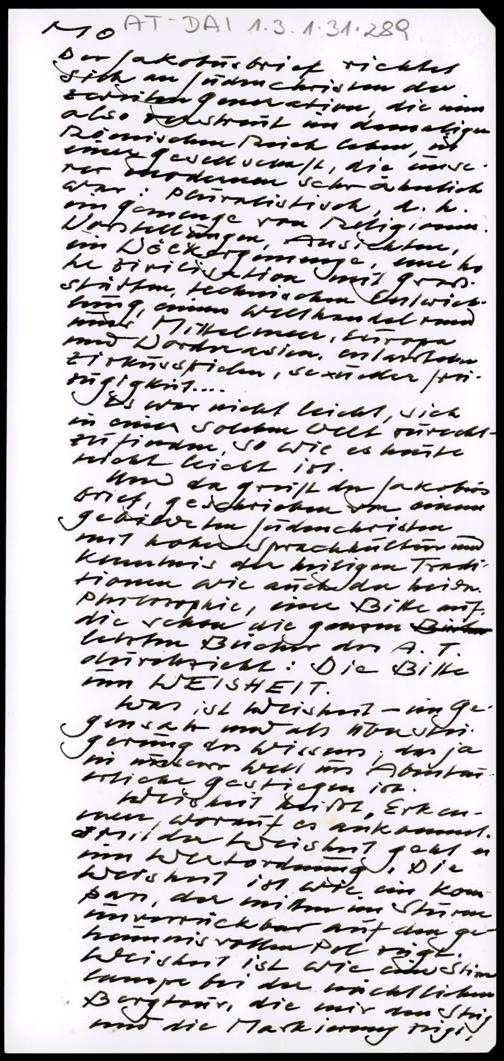 MO AT-DAI 1.3.1.31.289
Der Jakobusbrief richtet
sich an Judenchristen der
zweiten Generation, die nun
also zerstreut im damaligen
Römischen Reich leben, in
einer Gesellschaft, die unse-
rer modernen sehr ähnlich
war: pluralistisch, d. h.
ein Gemenge von Religionen,
Vorstellungen, Ansichten,
ein Völkergemenge, eine ho
he Zivilisation mit Groß-
städten, technischen Entwick-
lung, einem Welthandel rund
ums Mittelmeer, Europa
und Vorderasien,
Zirkusspielen, sexueller Frei-
zügigkeit....
Es war nicht leicht, sich
in einer solchen Welt zurecht-
zufinden, so wie es heute
nicht leicht ist.
Und da greift der Jakobus
brief, geschrieben von einem
gebildeten Judenchristen
mit hoher Sprachkultur und
Kenntnis der heiligen Tradi-
tionen wie auch der heidn.
Philosophie, eine Bitte auf,
die schon die ganzen
letzten Bücher des A. T.
durchzieht: Die Bitte
um WEISHEIT.
Was ist Weisheit – im Ge-
gensatz und als Überstei-
gerung des Wissens, das ja
in unserer Welt ins Abenteu-
erliche gestiegen ist.
Weisheit heißt, Erken-
nen, worauf es ankommt.
Mit der Weisheit geht es
um Wertordnung. Die
Weisheit ist wie ein Kom-
pass, der mitten im Sturm
unverrückbar auf den ge-
heimnisvollen Pol zeigt.
Weisheit ist wie eine Stirn
lampe bei der nächtlichen
Bergtour, die mir den Steig
und die Markierung zeigt,